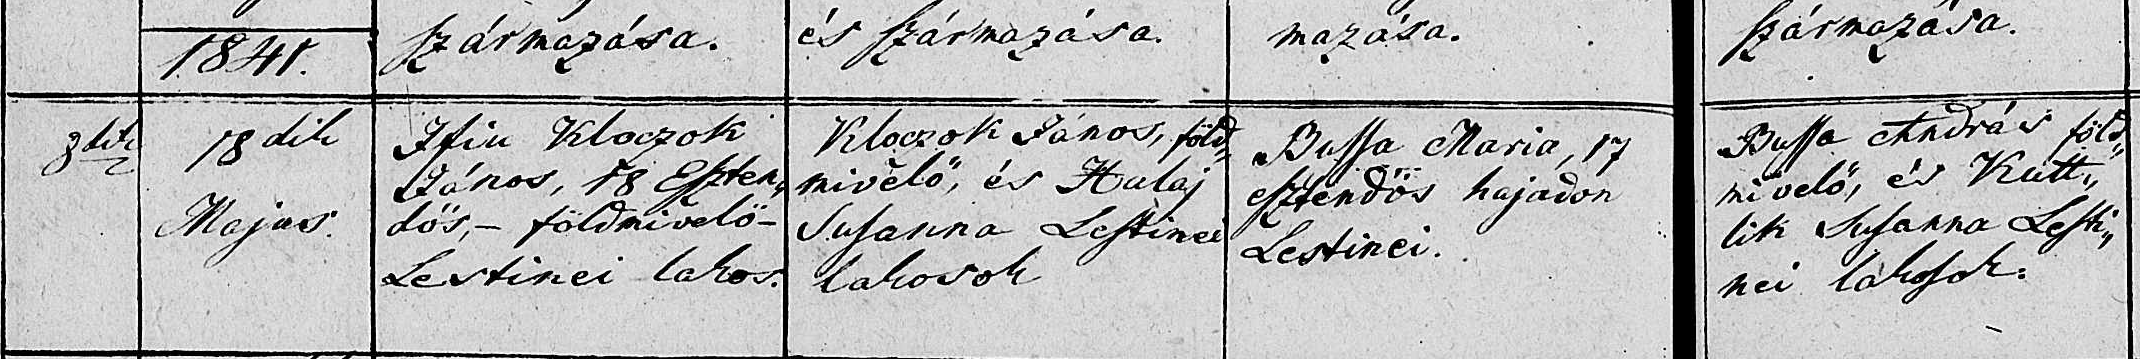 1841.
származása.
és származása.
mazása.
származása.
8dik
18dik
Majus.
Ifiu Kloczok
János, 18 Eszten„
dős, – földmivelő –
Lestinei lakos.
Kloczok János, föld„
mivelő, és Halaj
Susanna Lestinei
lakosok
Bussa Maria, 17
esztendős hajadon
Lestinei.
Bussa András föld„
mivelő, és Kutt„
lik Susanna Lesti„
nei lakosok.